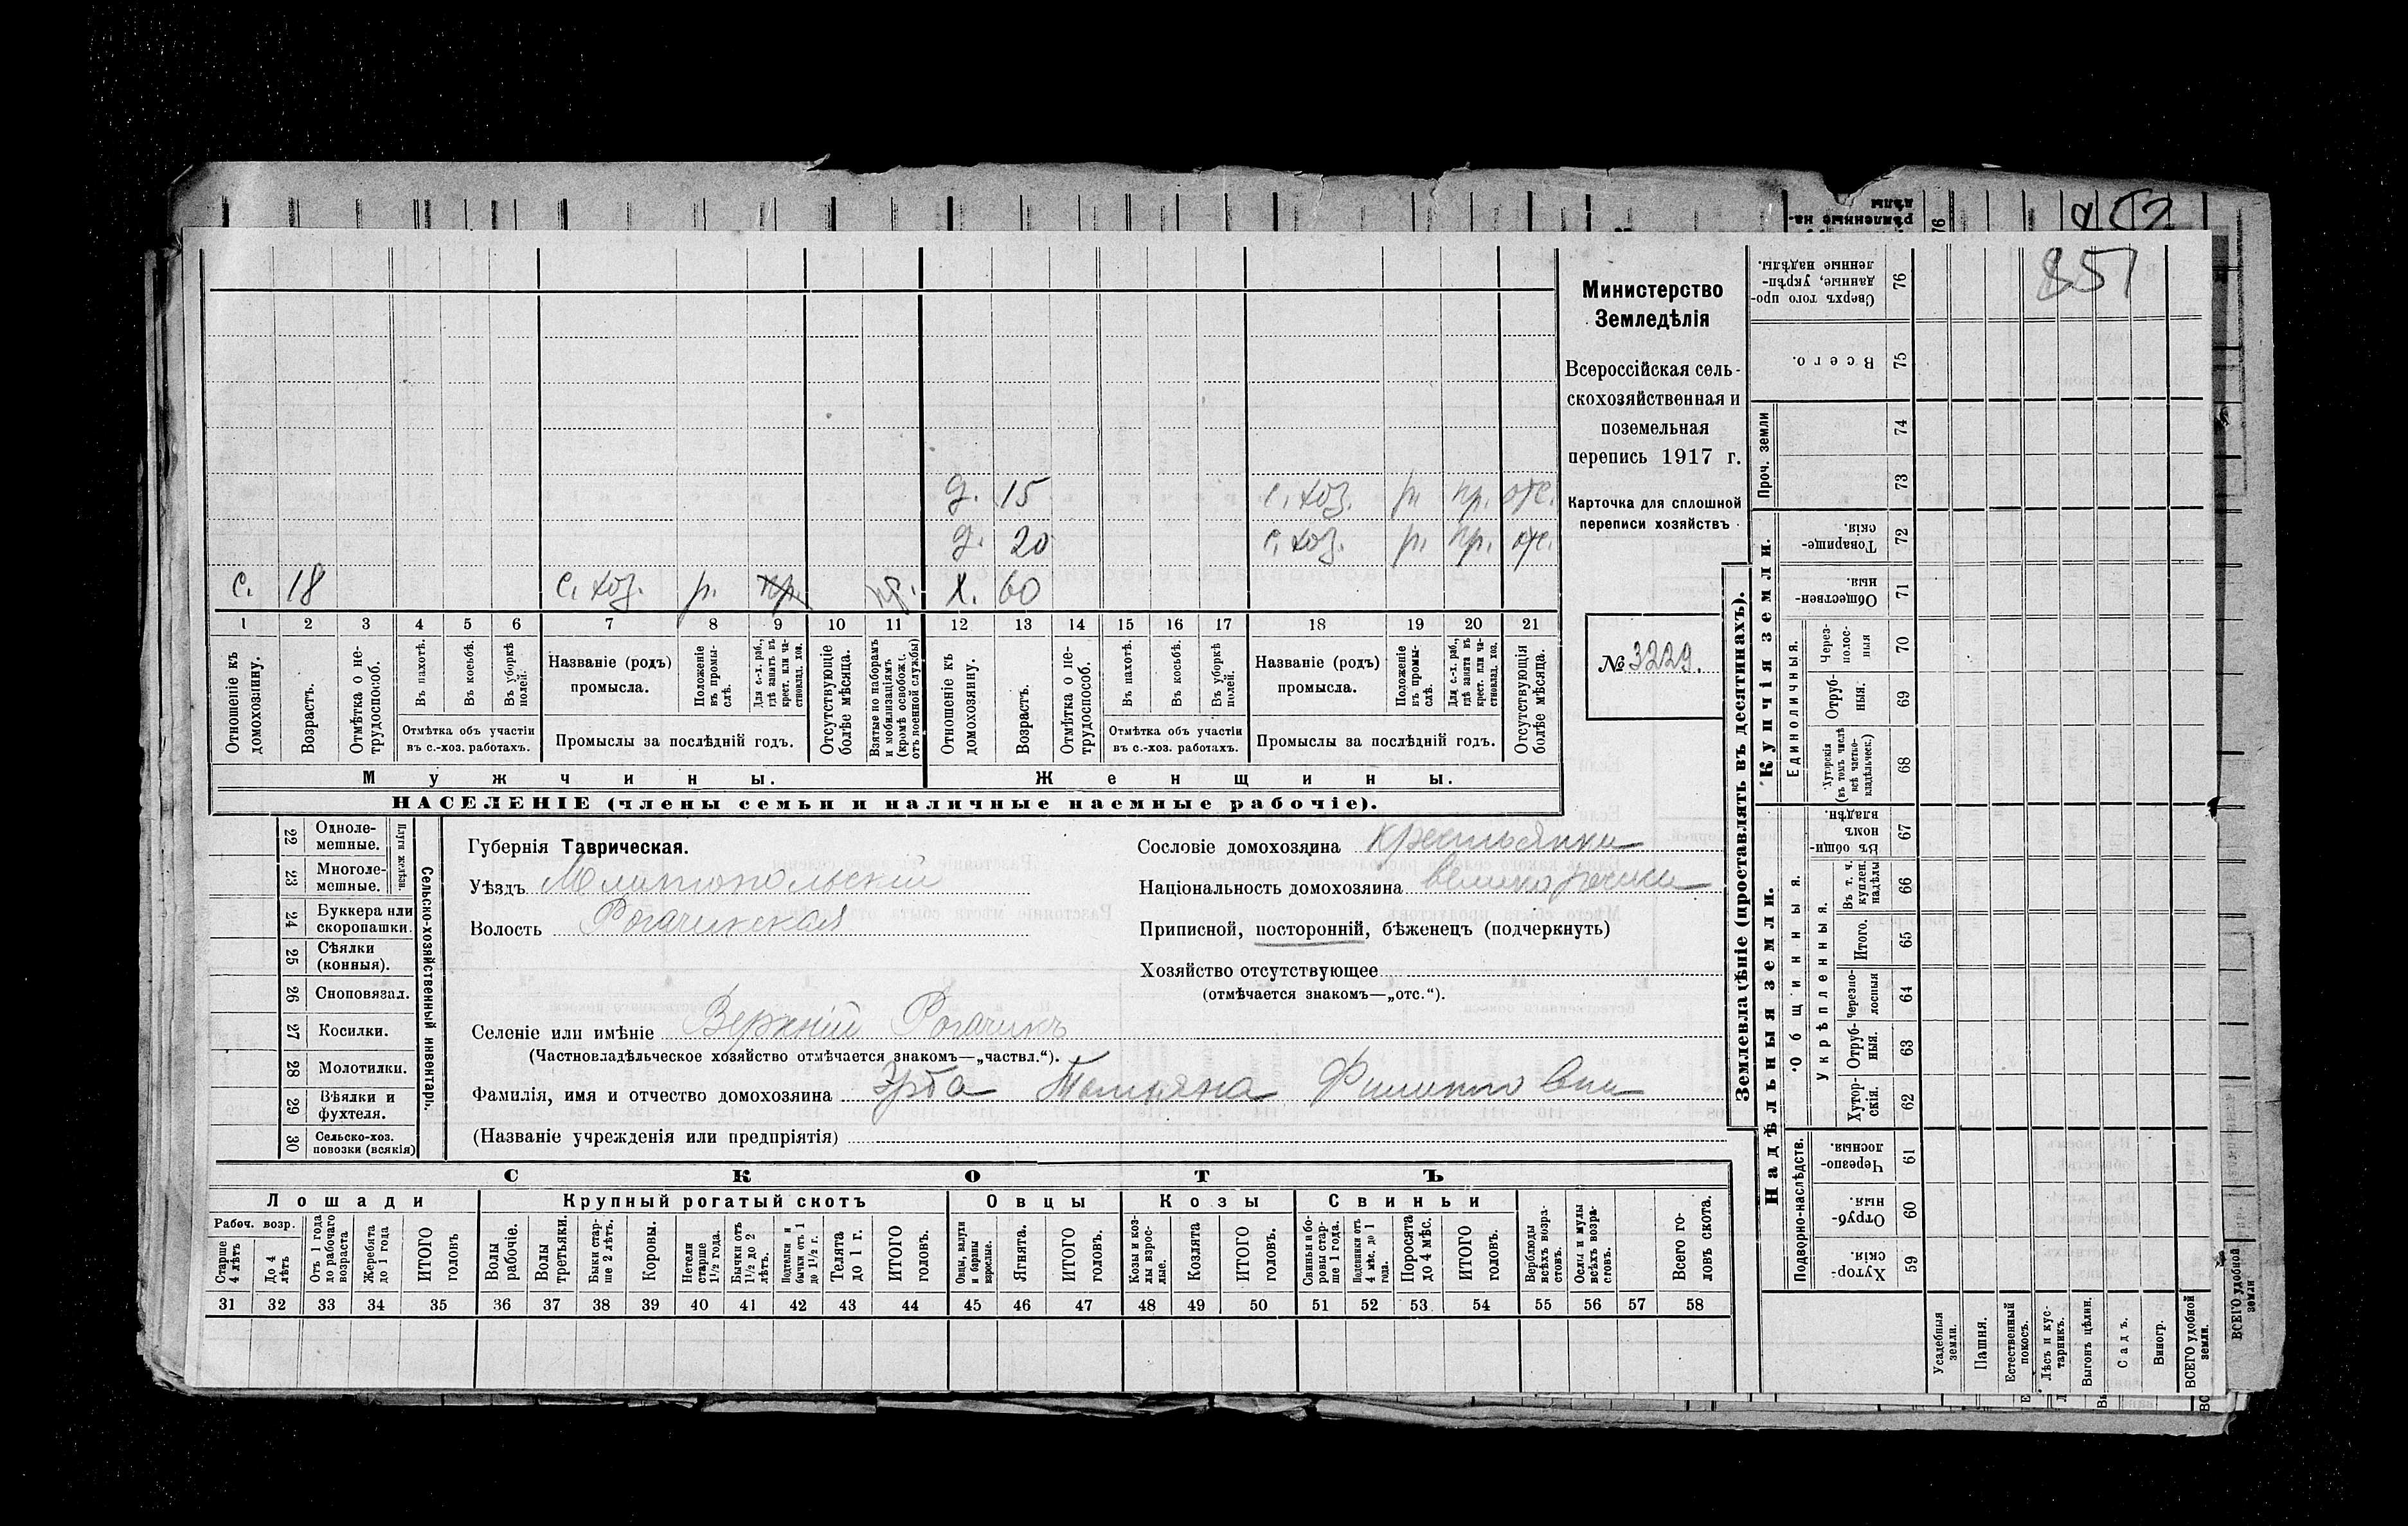 851
Министерство
Земледѣлія
Всероссійская сель-
скохозяйственная и
поземельная
перепись 1917 г.
Карточка для сплошной
переписи хозяйствъ
№ 3229.
д. 15 с. хоз. р. пр. отс.
д. 20 с. хоз. р. пр. отс.
с. 18 с. хоз. р. пр. х. 60
1 2 3 4 5 6 7 8 9 10 11 12 13 14 15 16 17 18 19 20 21
Отношеніе къ домохозяину.
Возрастъ.
Отмѣтка о не-трудоспособ.
Въ пахотѣ.
Въ косьбѣ.
Въ уборкѣ полей.
Отмѣтка объ участіи въ с.-хоз. работахъ.
Названіе (родъ) промысла.
Положеніе въ промы-слѣ.
Для с.-х. раб., гдѣ занятъ въ крест. или ча-стновлад. хоз.
Промыслы за послѣдній годъ.
Отсутствующіе болѣе мѣсяца.
Взятые по наборамъ и мобилизаціямъ (кромѣ освобожд. отъ военной службы)
Отношеніе къ домохозяину.
Возрастъ.
Отмѣтка о не-трудоспособ.
Въ пахотѣ.
Въ косьбѣ.
Въ уборкѣ полей.
Отмѣтка объ участіи въ с.-хоз. работахъ.
Названіе (родъ) промысла.
Положеніе въ промы-слѣ.
Для с.-х. раб., гдѣ занята въ крест. или ча-стновлад. хоз.
Промыслы за послѣдній годъ.
Отсутствующія болѣе мѣсяца.
Мужчины. Женщины.
НАСЕЛЕНІЕ (члены семьи и наличные наемные рабочіе).
22 Одноле-мешные.
23 Многоле-мешные.
Плуги желѣзн.
24 Буккера или скоропашки.
25 Сѣялки (конныя).
26 Сноповязал.
27 Косилки.
28 Молотилки.
29 Вѣялки и фухтеля.
30 Сельско-хоз. повозки (всякія)
Сельско-хозяйственный инвентарь.
Губернія Таврическая.
Уѣздъ Мелитопольскій
Волость Рогачикская
Сословіе домохозяина крестьянка
Національность домохозяина
Приписной, посторонній, бѣженецъ (подчеркнуть)
Хозяйство отсутствующее
(отмѣчается знакомъ—„отс.“).
Селеніе или имѣніе Верхній Рогачикъ
(Частновладѣльческое хозяйство отмѣчается знакомъ—„частвл.“).
Фамилія, имя и отчество домохозяина Зуба Татьяна Филипповна
(Названіе учрежденія или предпріятія)
СКОТЪ
Лошади Крупный рогатый скотъ Овцы Козы Свиньи
Рабоч. возр.
Старше 4 лѣтъ
До 4 лѣтъ
Отъ 1 года до рабочаго возраста
Жеребята до 1 года
ИТОГО головъ
Волы рабочіе.
Волы третьяки.
Быки стар-ше 2 лѣтъ.
Коровы.
Нетели старше 1½ года.
Бычки отъ 1½ до 2 лѣтъ.
Подтелки и бычки отъ 1 до 1½ г.
Телята до 1 г.
ИТОГО головъ.
Овцы, валухи и бараны взрослые.
Ягнята.
ИТОГО головъ.
Козы и коз-лы взрос-лые.
Козлята
ИТОГО головъ.
Свиньи и бо-ровы стар-ше 1 года.
Подсвинки отъ 4 мѣс. до 1 года.
Поросята до 4 мѣс.
ИТОГО головъ.
Верблюды всѣхъ возра-стовъ.
Ослы и мулы всѣхъ возра-стовъ.
Всего го-ловъ скота.
31 32 33 34 35 36 37 38 39 40 41 42 43 44 45 46 47 48 49 50 51 52 53 54 55 56 57 58
Землевладѣніе (проставлять въ десятинахъ).
Купчія земли.
Надѣльныя земли.
Сверхъ того про-данные, укрѣп-ленные надѣлы. 76
Всего. 75
Проч. земли
74
73
Товарище-скія. 72
Обществен-ныя. 71
Единоличныя.
Через-полос-ныя 70
Отруб-ныя. 69
Хуторскія (въ томъ числѣ всѣ частно-владѣльческ.) 68
Общинныя.
Въ общи-номъ владѣн. 67
Укрѣпленныя.
Въ т. ч. куплен. надѣлы 66
Итого. 65
Черезпо-лосныя 64
Отруб-ныя. 63
Хутор-скія. 62
Подворно-наслѣдств.
Черезпо-лосныя 61
Отруб-ныя. 60
Хутор-скія. 59
Усадебныя земли.
Пашня.
Естественный покосъ.
Лѣсъ и кус-тарникъ.
Выгонъ цѣлин.
Садъ.
Виногр.
ВСЕГО удобной земли.
ВСЕГО удобной земли